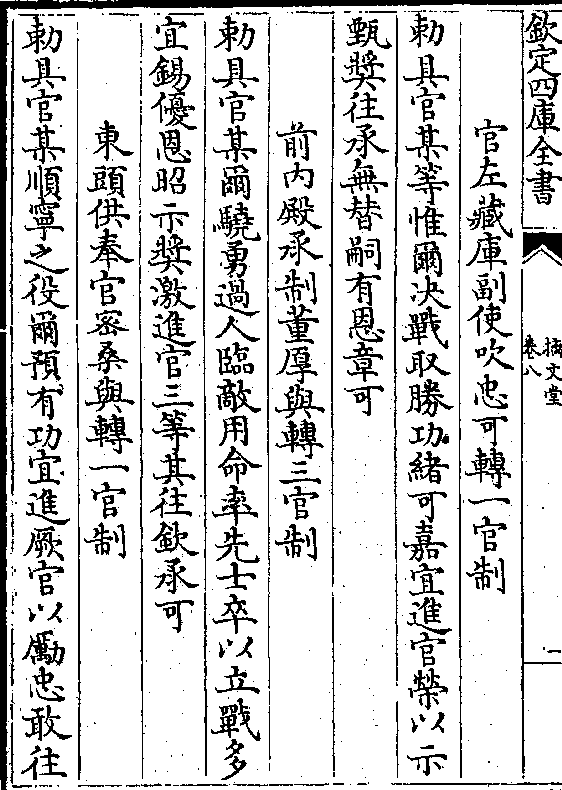 欽定四庫全書
摛文堂
卷八
一
官左藏庫副使吹忠可轉一官制
勅具官某等惟爾决戰取勝功緒可嘉宜進官榮以示
甄奬往承無替嗣有恩章可
前内殿承制董厚與轉三官制
勅具官某爾驍勇過人臨敵用命率先士卒以立戰多
宜錫優恩昭示奬激進官三等其往欽承可
東頭供奉官宻桑與轉一官制
勅具官某順寧之役爾預有功宜進厥官以勵忠敢往